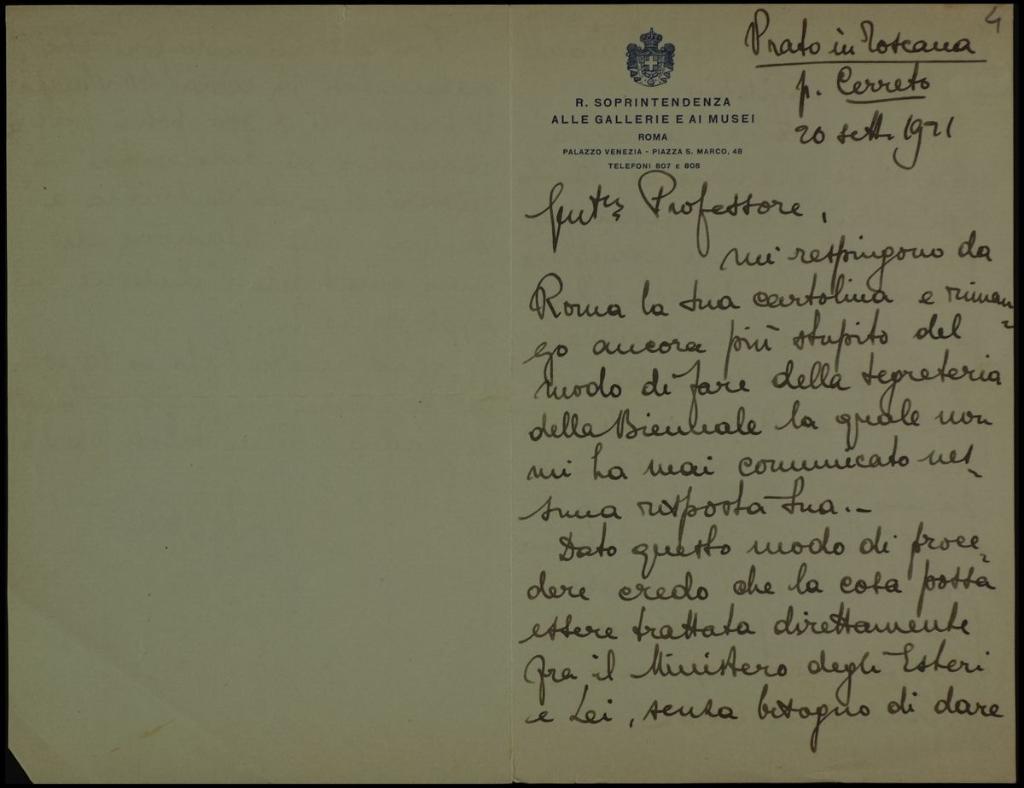 4
Prato in Toscana
p. Cerreto
20 sett. 1921
R. SOPRINTENDENZA
ALLE GALLERIE E AI MUSEI
ROMA
PALAZZO VENEZIA - PIAZZA S. MARCO, 48
TELEFONI 807 E 808
Professore,
mi respingono da
Roma la sua cartolina e riman-
go ancora più stupito del
modo di fare della segreteria
della Biennale la quale non
mi ha mai comunicato nes-
suna risposta sua.-
Dato questo modo di proce-
dere credo che la cosa possa
essere trattata direttamente
fra il Ministero degli Esteri
e Lei, senza bisogno di dare